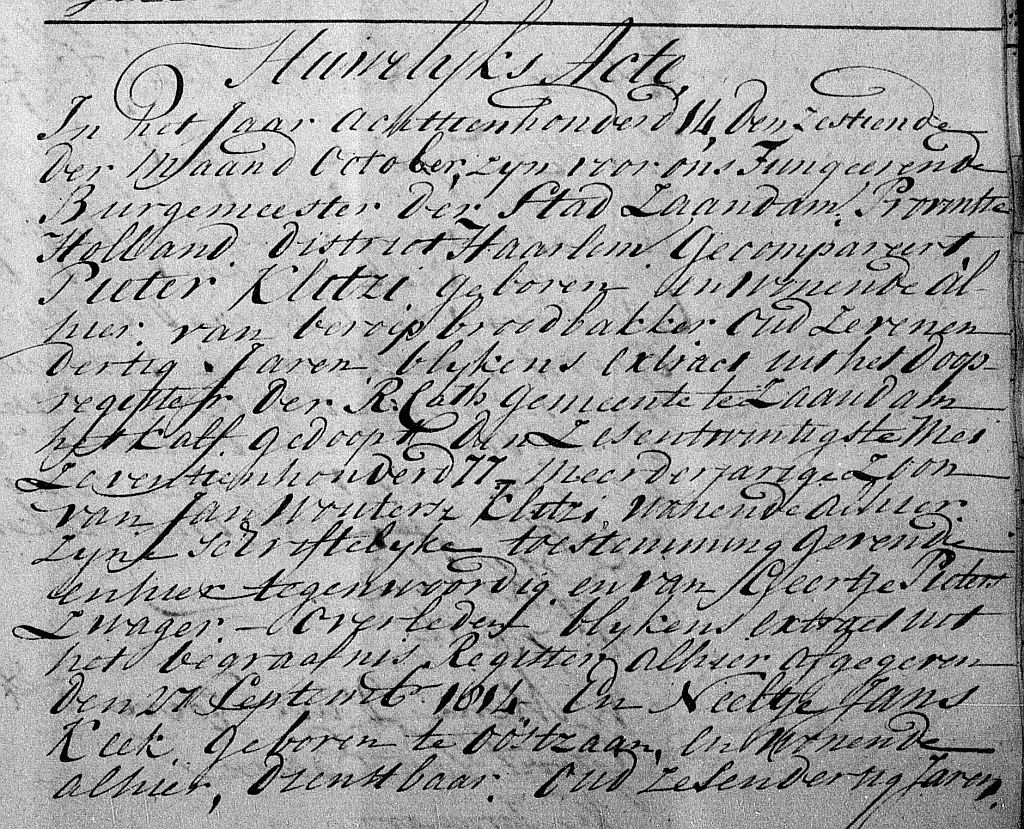 Huwelyks Acte,
In het Jaar achttienhonderd 14, den zestiende
der Maand October, zyn voor ons Fungeerende
Burgemeester der Stad Zaandam, Provintie
Holland, district Haarlem Gecompareert,
Pieter Klotzi, geboren en wonende al-
hier, van beroep broodbakker oud zevenen
dertig Jaren, blykens extract uit het Doop-
register der R. Cath Gemeente te Zaandam
het kalf, gedoopt den Zesentwintigste Mei
Zeventienhonderd 77, meerderjarige Zoon
van Jan Wouterz Klotzi, wonende alhier
zyne schriftelyke toestemming gevende
en hier tegenwoordig en van Geertje Pieters
Zwager, - Overleden blykens extract uit
het begraafnis Register alhier afgegeven
den 27 Septemb 1814 En Neeltje Jans
Keek, geboren te Oostzaan, en wonende
alhier, dienstbaar, oud zesendertig Jaren,